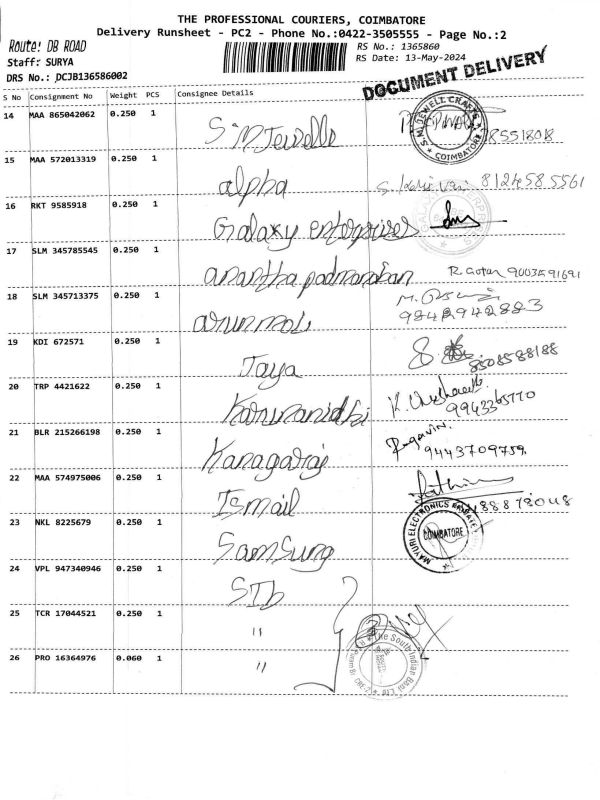 THE PROFESSIONAL COURIERS, COIMBATORE
Delivery Runsheet - PC2 - Phone No.:0422-3505555 - Page No.:2
Route: DB ROAD
RS No.: 1365860
Staff: SURYA
RS Date: 13-May-2024
DRS No.: DCJB136586002
DOCUMENT DELIVERY
S No Consignment No Weight PCS Consignee Details
14 MAA 865042062 0.250 1 S M Jewells
COIMBATORE
15 MAA 572013319 0.250 1 alpha 8124585561
16 RKT 9585918 0.250 1 Galaxy enterprises
17 SLM 345785545 0.250 1 anantha padmanaban
18 SLM 345713375 0.250 1 arunmoli
9842942883
19 KDI 672571 0.250 1 Jaya 8508588188
20 TRP 4421622 0.250 1 Karunanidhi
21 BLR 215266198 0.250 1 Kanagaraj Ragavin.
9443709759
22 MAA 574975006 0.250 1 Ismail
23 NKL 8225679 0.250 1 Samsung
MAYURI ELECTRONICS COIMBATORE
24 VPL 947340946 0.250 1 SIb
25 TCR 17044521 0.250 1 "
The South Indian Bank Ltd
26 PRO 16364976 0.060 1 "